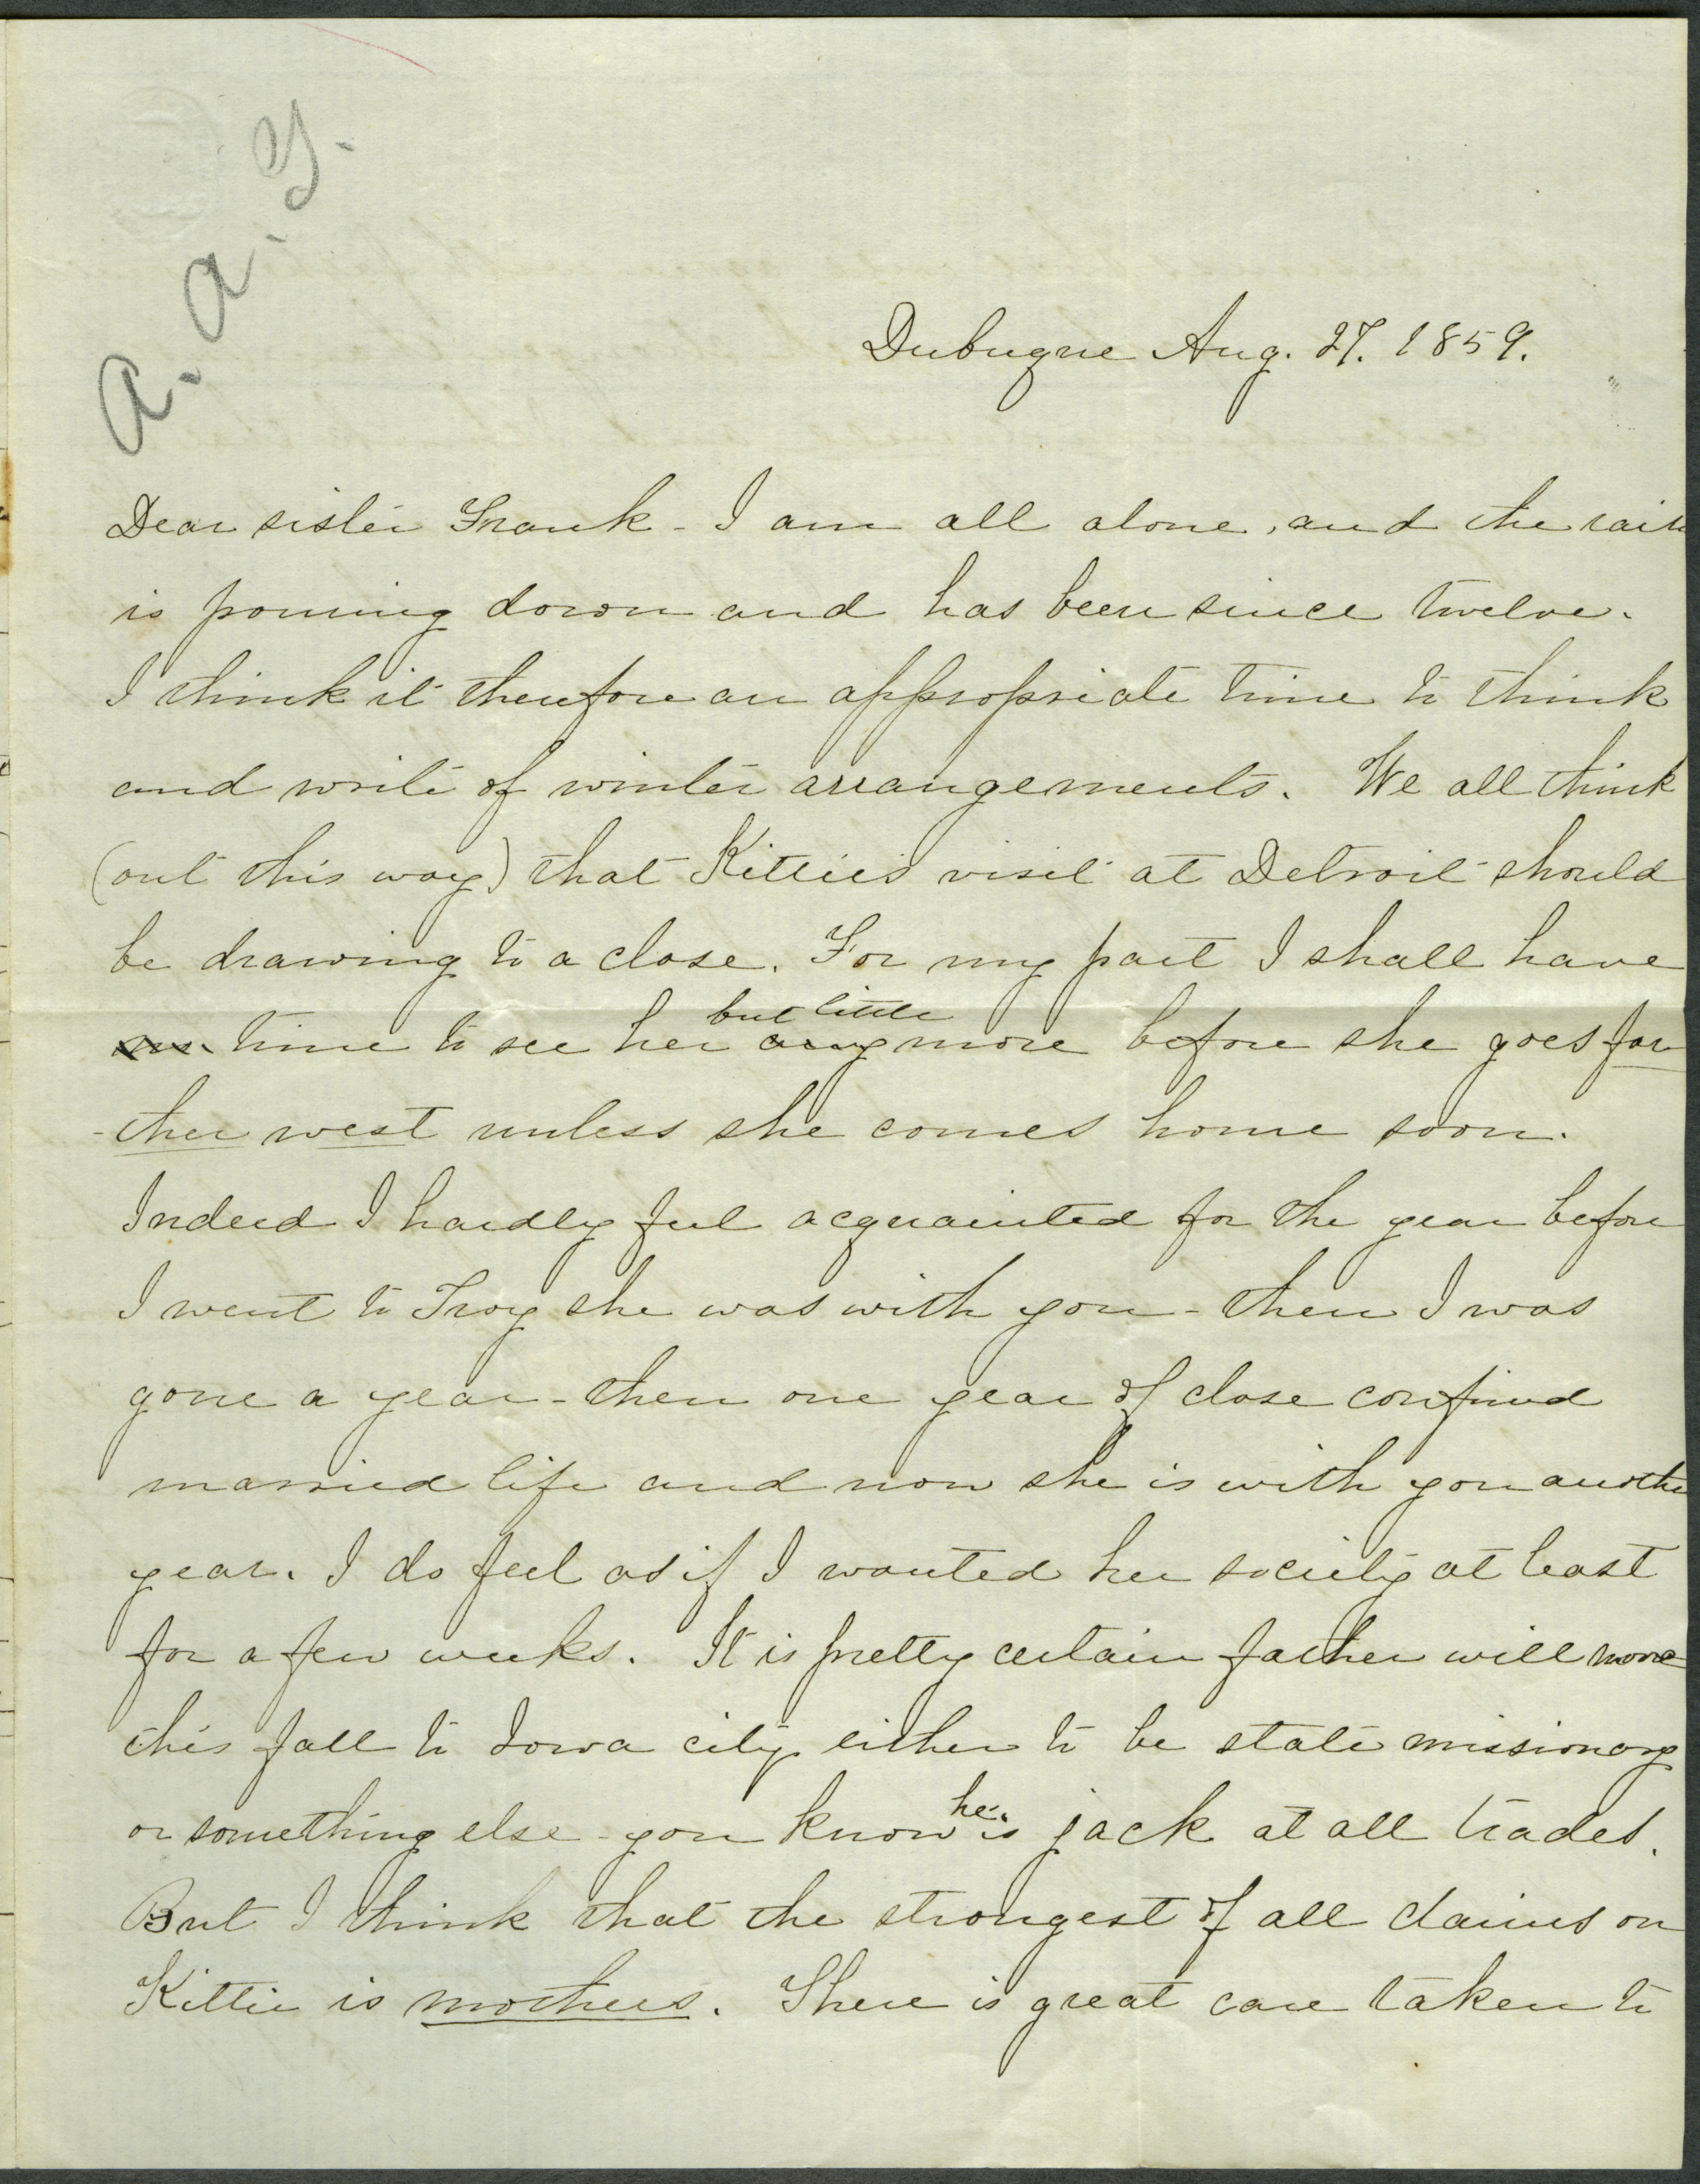 a. a. g.
Dubuque Aug. 27. 1859.
Dear sister Frank - I am all alone, and the rain
is pouring down and has been since twelve.
I think it therefore an appropriate time to think
and write of winter arrangements. We all think
(out this way) that Kittie's visit at Detroit should
be drawing to a close. For my part I shall have
but little
no time to see her any more before she goes far
-ther west unless she comes home soon.
Indeed I hardly feel acquainted for the year before
I went to Troy she was with you - then I was
gone a year - then one year of close confined
married life and now she is with you another
year. I do feel as if I wanted her society at least
for a few weeks. It is pretty certain father will move
this fall to Iowa city either to be state missionary
or something else - you know he is jack at all trades.
But I think that the strongest of all claims on
Kittie is mothers. There is great care taken to